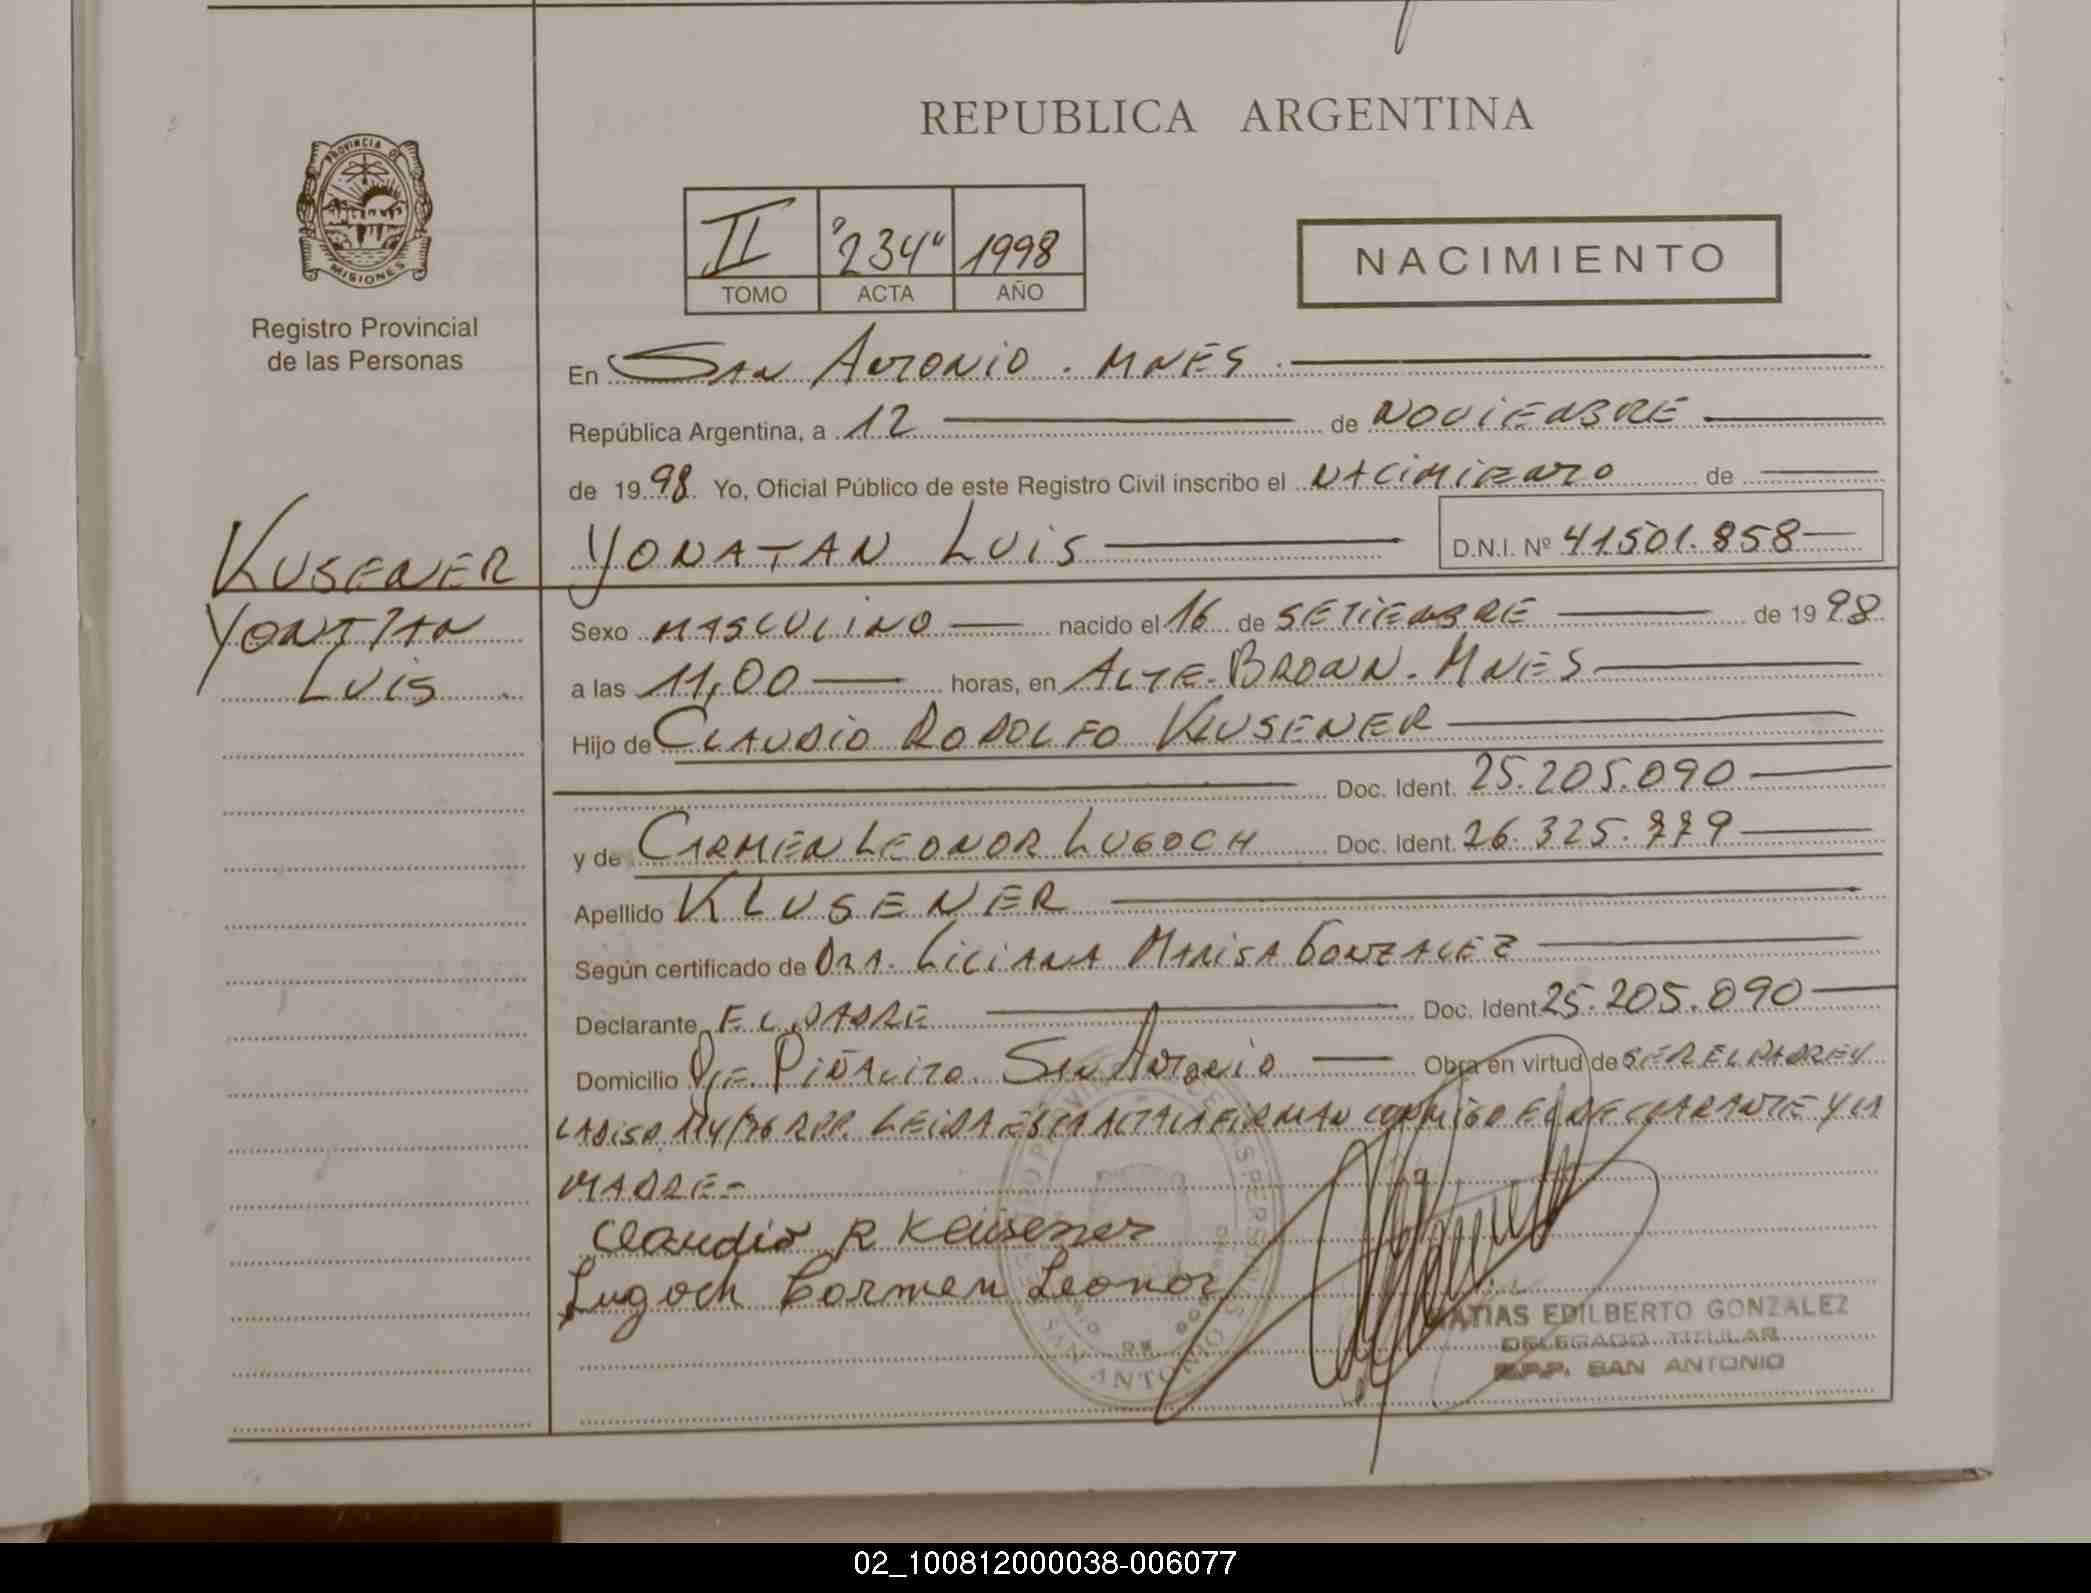 REPUBLICA ARGENTINA
PROVINCIA DE
MISIONES
Registro Provincial
de las Personas
II "234" 1998
TOMO ACTA AÑO
NACIMIENTO
En San Antonio. Mnes.
República Argentina, a 12 de Noviembre
de 1998. Yo, Oficial Público de este Registro Civil inscribo el Nacimiento de
Yonatan Luis D.N.I. Nº 41501.858
Kusener
Yonatan
Luis
Sexo Masculino nacido el 16 de Setiembre de 1998
a las 11,00 horas, en Alte. Brown. Mnes
Hijo de Claudio Rodolfo Klusener
Doc. Ident. 25.205.090
y de Carmen Leonor Lugoch Doc. Ident. 26.325.779
Apellido Klusener
Según certificado de Dra. Liliana Marisa Gonzalez
Declarante El Padre Doc. Ident 25.205.090
Domicilio Pje. Piñalito. San Antonio Obra en virtud de ser el padre y
la Disp. 114/96 RPP. Leida esta acta la firman conmigo el declarante y la
Madre=
Claudio R Klusener
Lugoch Carmen Leonor
SAN ANTONIO
MATIAS EDILBERTO GONZALEZ
DELEGADO TITULAR
R.P.P. SAN ANTONIO
02_100812000038-006077